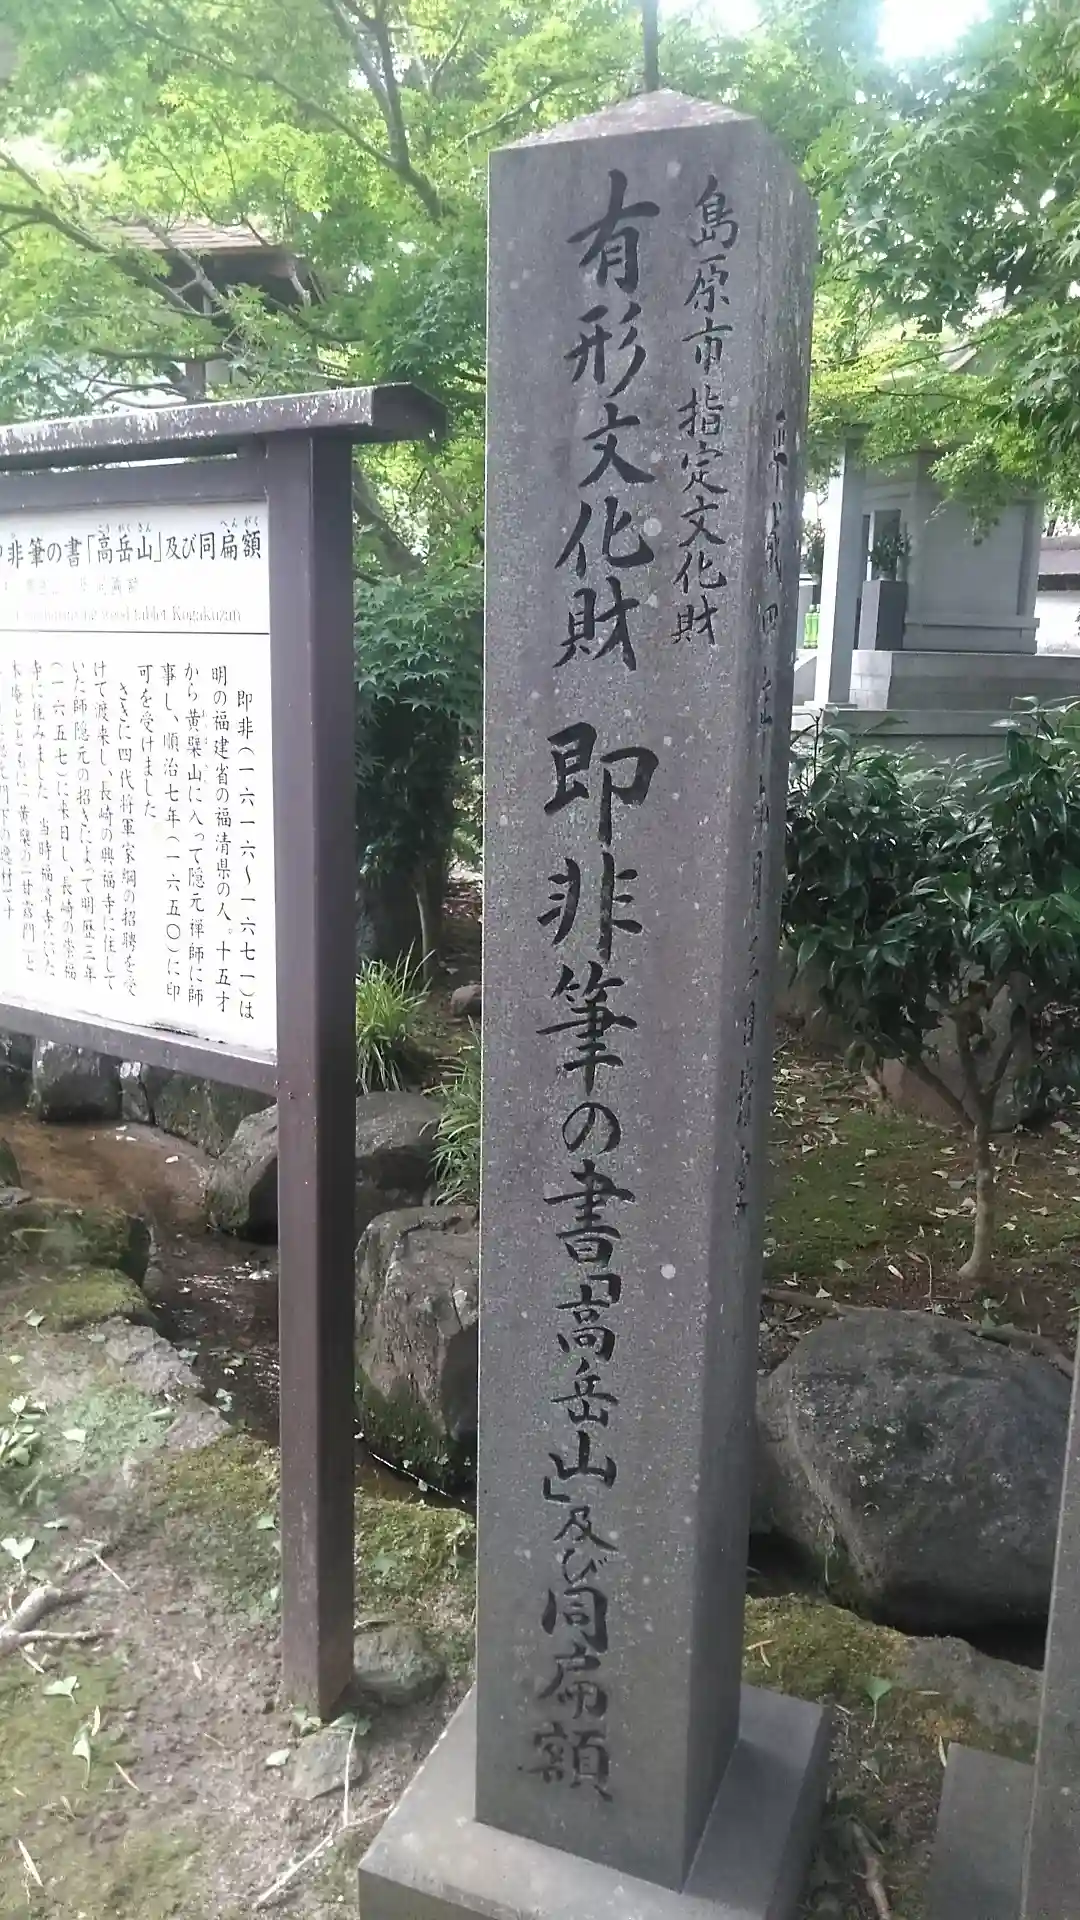 島原市指定文化財
有形文化財 即非筆の書「高岳山」及び同扁額
非筆の書「高岳山」及び同扁額
こうがくさん
へんがく
wood tablet Kogakuzan
即非(一六一六~一六七一)は
明の福建省の福清県の人。十五才
から黄檗山に入って隠元禅師に師
事し、順治七年(一六五〇)に印
可を受けました
さきに四代将軍家綱の招聘を受
けて渡来し、長崎の興福寺に住して
いた師隠元の招きによって明暦三年
(一六五七)に来日し、長崎の崇福
寺に住みました。当時福済寺にいた
木庵とともに「黄檗の二甘露門」と